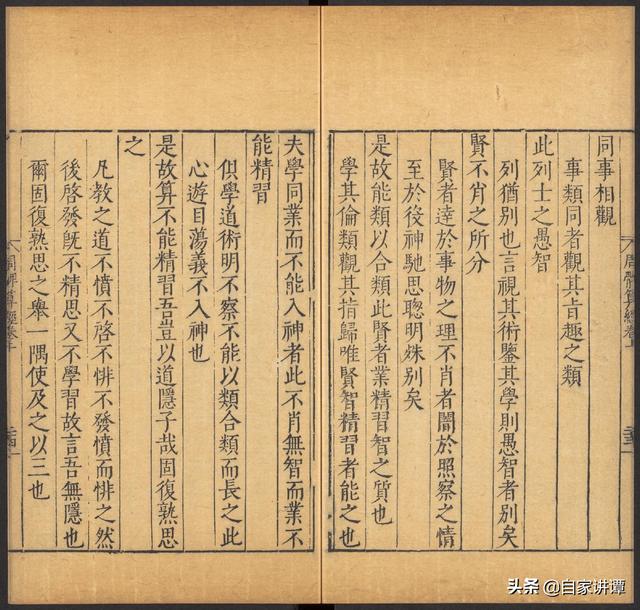 同事相觀
事類同者觀其旨趣之類
此列士之愚智
列猶別也言視其術鑒其學則愚智者別矣
賢不肖之所分
賢者達於事物之理不肖者闇於照察之情
至於役神馳思聰明殊別矣
是故能類以合類此賢者業精習智之質也
學其倫類觀其指歸唯賢智精習者能之也
周髀算經卷上
夫學同業而不能入神者此不肖無智而業不
能精習
但學道術明不察不能以類合類而長之此
心遊目蕩義不入神也
是故算不能精習吾豈以道隱子哉固復熟思
之
凡教之道不憤不啓不悱不發憤而悱之然
後啓發旣不精思又不學習故言吾無隱也
爾固復熟思之舉一隅使及之以三也
周髀算經卷上
头条 @自家讲谭